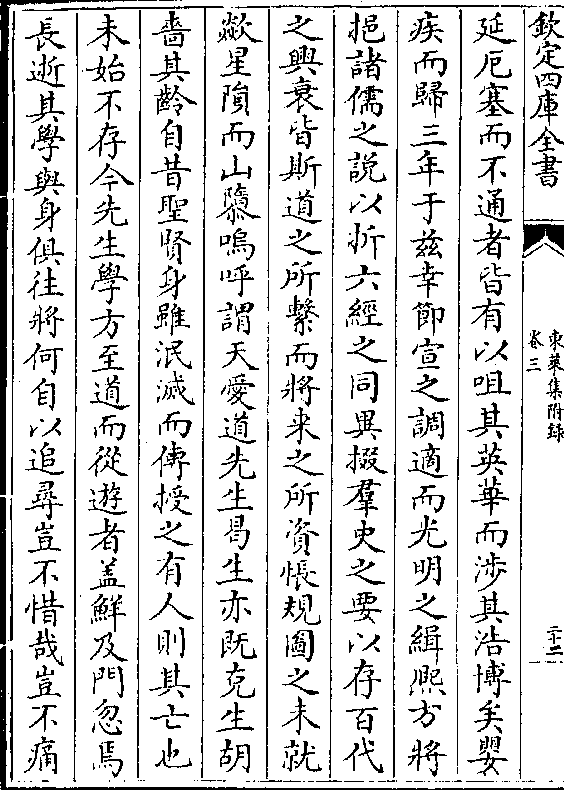 欽定四庫全書
東萊集附録
卷三
二十二
延厄塞而不通者皆有以咀其英華而涉其浩博矣嬰
疾而歸三年于兹幸節宣之調適而光明之緝熈方將
挹諸儒之説以折六經之同異掇羣史之要以存百代
之興衰皆斯道之所繫而將来之所資悵規圖之未就
歘星隕而山隳嗚呼謂天愛道先生曷生亦既克生胡
嗇其齡自昔聖賢身雖泯滅而傳授之有人則其亡也
未始不存今先生學方至道而從遊者盖鮮及門忽焉
長逝其學與身俱往將何自以追尋豈不惜哉豈不痛